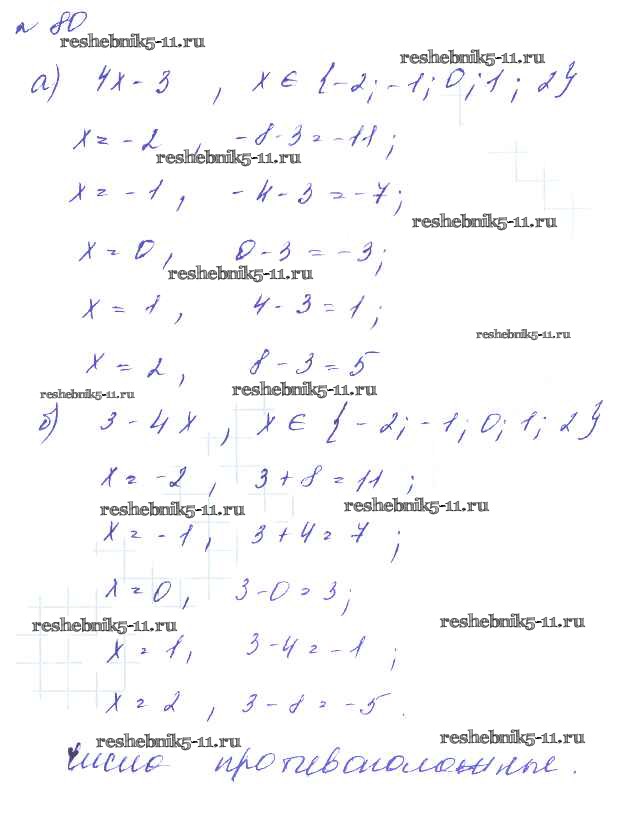 № 80
reshebnik5-11.ru
reshebnik5-11.ru
а) 4x - 3 , x ∈ {-2; -1; 0; 1; 2}
x = -2 , -8 - 3 = -11;
reshebnik5-11.ru
x = -1 , -4 - 3 = -7;
reshebnik5-11.ru
x = 0, 0 - 3 = -3;
reshebnik5-11.ru
x = 1 , 4 - 3 = 1;
reshebnik5-11.ru
x = 2 , 8 - 3 = 5
reshebnik5-11.ru
reshebnik5-11.ru
б) 3 - 4x , x ∈ {-2; -1; 0; 1; 2}
x = -2 , 3 + 8 = 11 ;
reshebnik5-11.ru
reshebnik5-11.ru
x = -1 , 3 + 4 = 7 ;
x = 0 , 3 - 0 = 3;
reshebnik5-11.ru
reshebnik5-11.ru
x = 1, 3 - 4 = -1 ;
x = 2 , 3 - 8 = -5 .
reshebnik5-11.ru
reshebnik5-11.ru
числа противоположные.